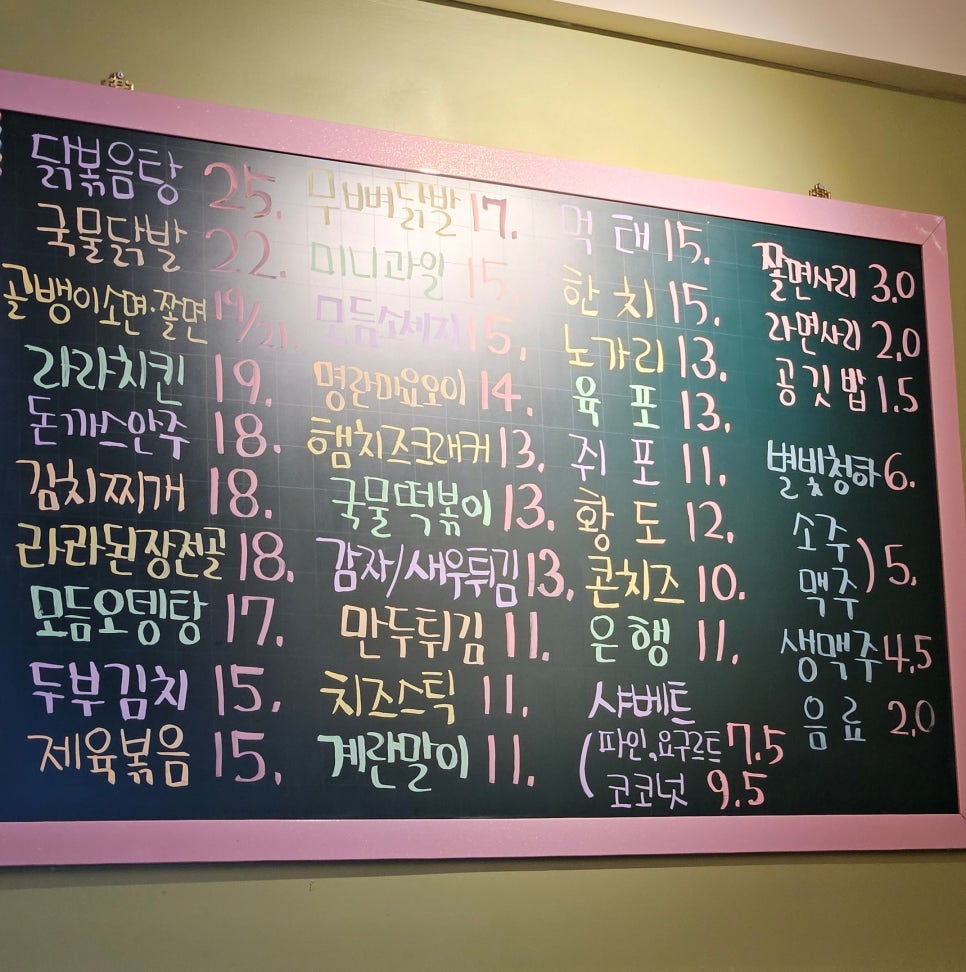 닭볶음탕 25.
국물닭발 22.
골뱅이소면·쫄면 19/21.
라라치킨 19.
돈까스안주 18.
김치찌개 18.
라라된장전골 18.
모듬오뎅탕 17.
두부김치 15.
제육볶음 15.
무뼈닭발 17.
미니과일 15.
모듬소세지 15.
명란마요오이 14.
햄치즈크래커 13.
국물떡볶이 13.
감자/새우튀김 13.
만두튀김 11.
치즈스틱 11.
계란말이 11.
먹태 15.
한치 15.
노가리 13.
육포 13.
쥐포 11.
황도 12.
콘치즈 10.
은행 11.
샤베트
(파인,요구르트 7.5
코코넛 9.5
쫄면사리 3.0
라면사리 2.0
공깃밥 1.5
별빛청하 6.
소주
맥주 ) 5.
생맥주 4.5
음료 2.0